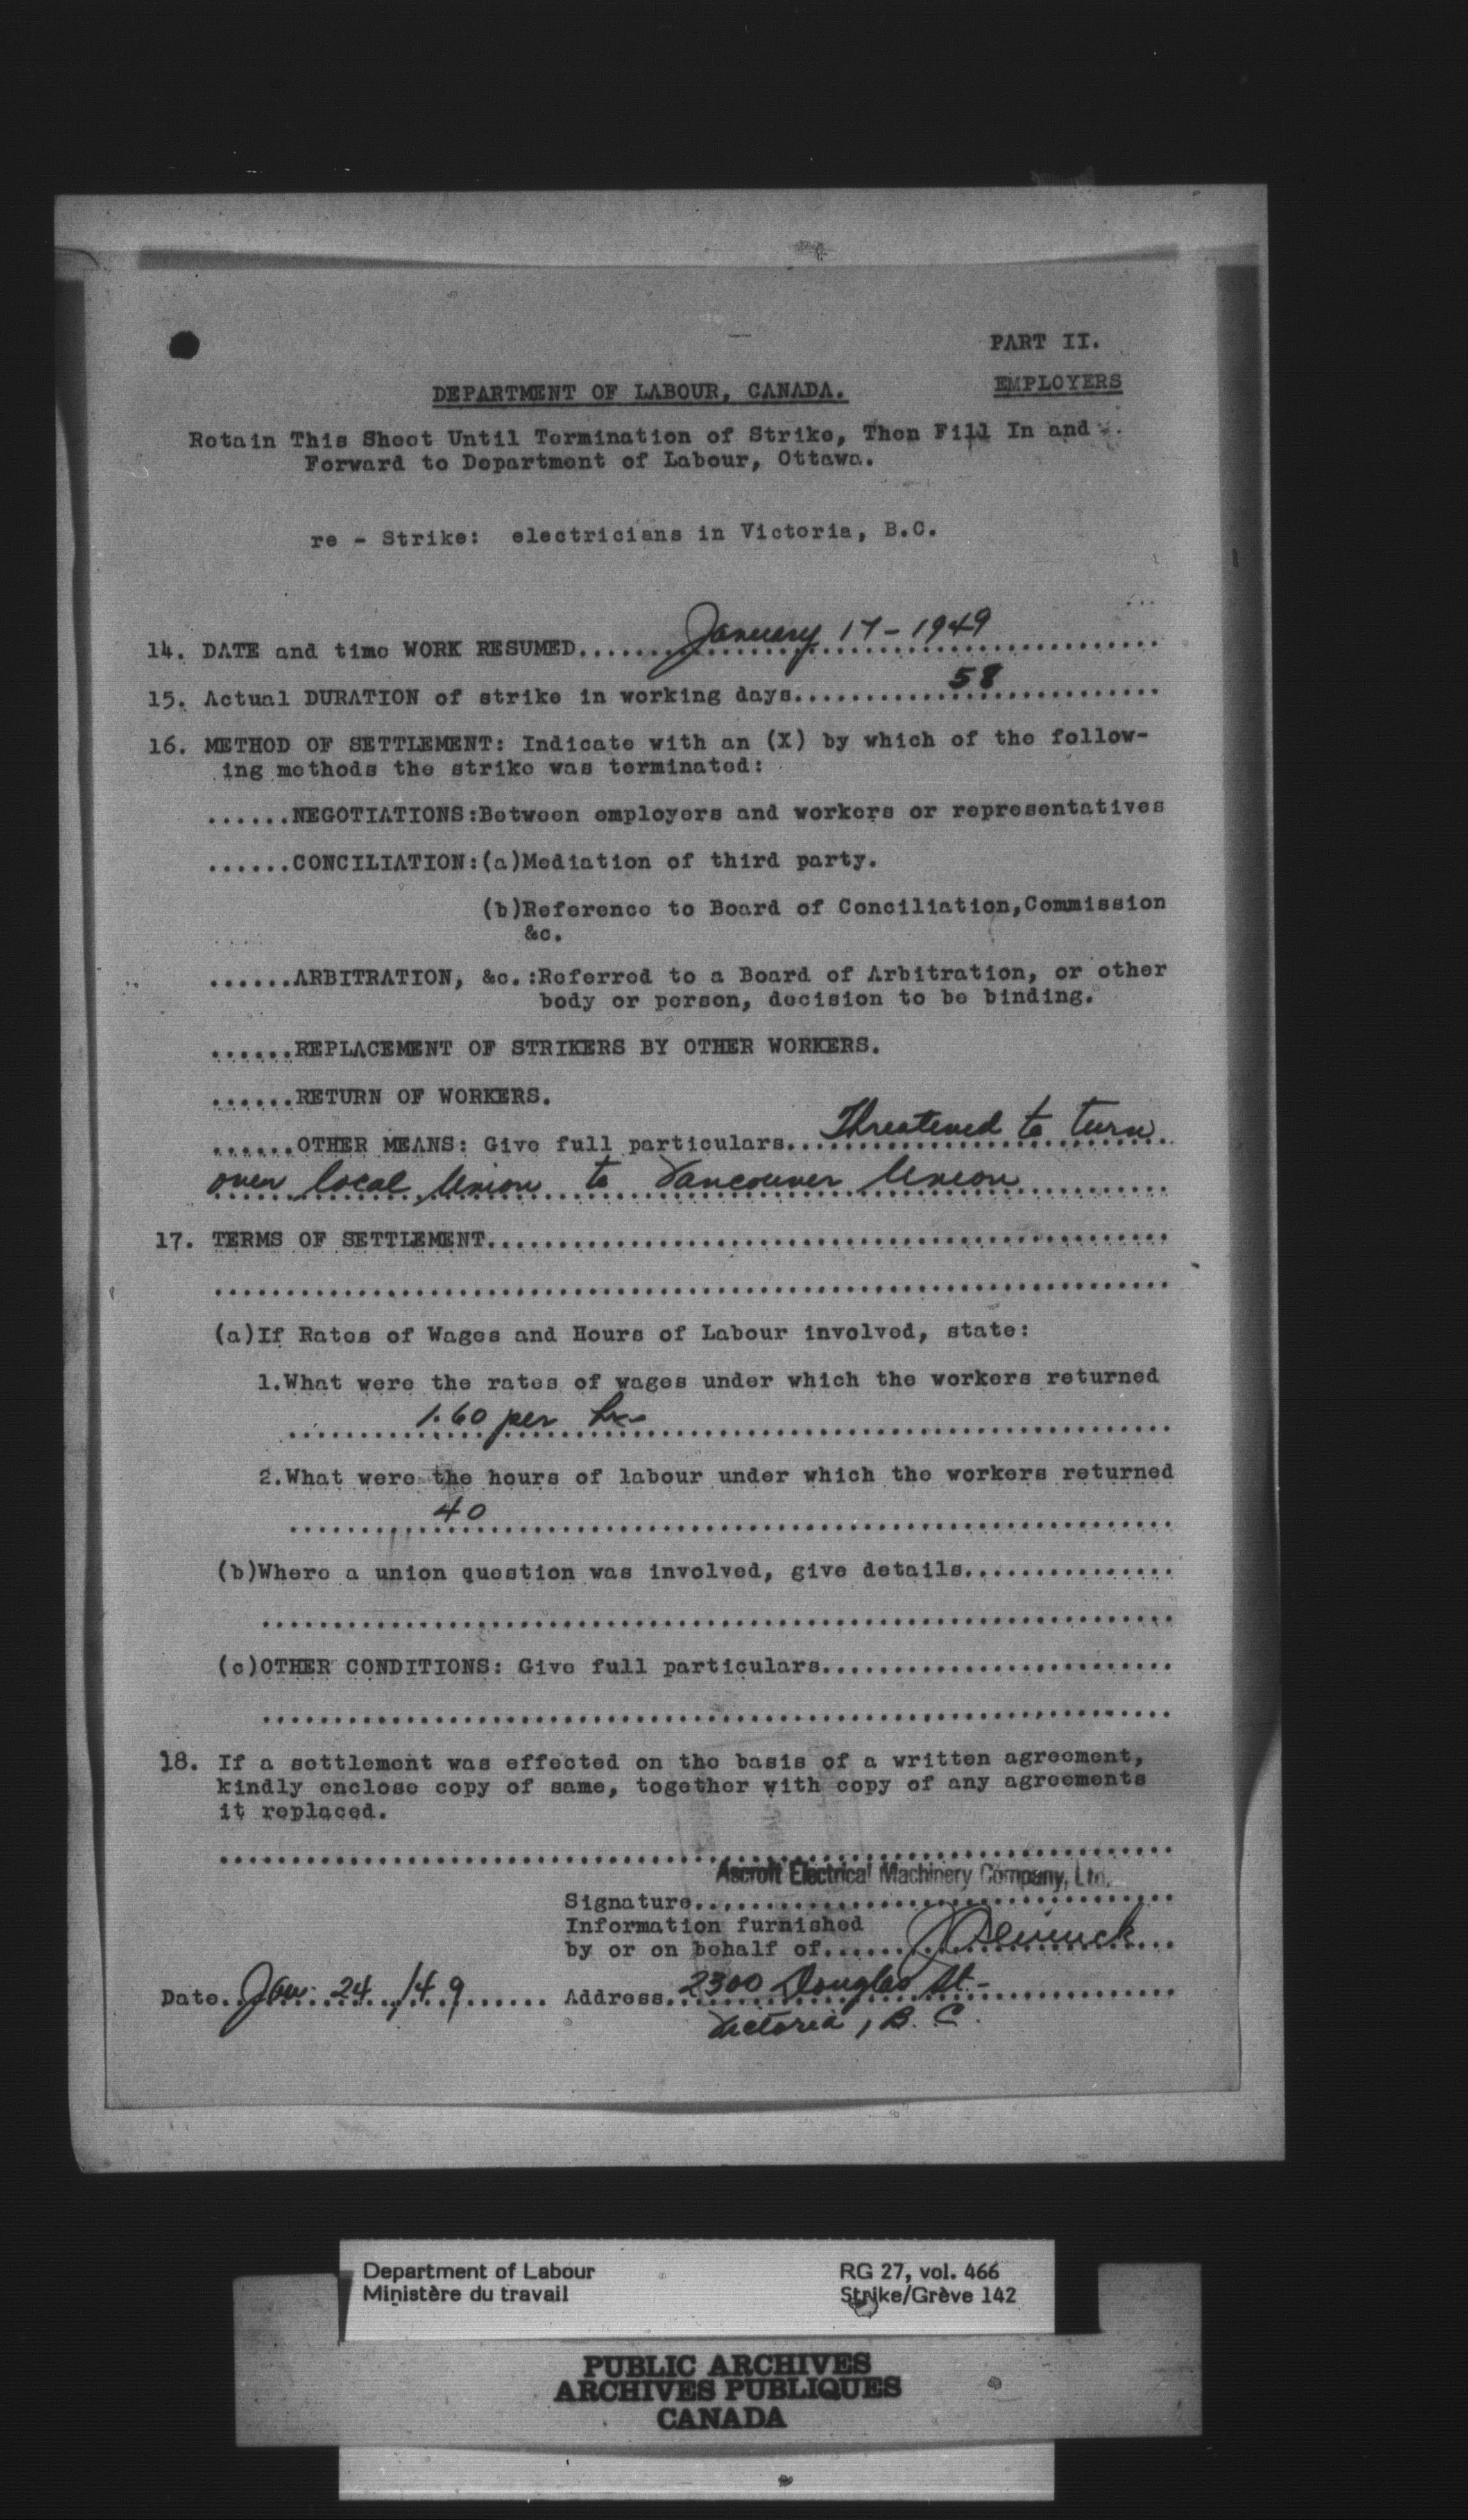 PART II.
DEPARTMENT OF LABOUR, CANADA.
EMPLOYERS
Retain This Sheet Until Termination of Strike, Then Fill In and
Forward to Department of Labour, Ottawa.
re - Strike: electricians in Victoria, B.C.
14. DATE and time WORK RESUMED.......January 17 - 1949
15. Actual DURATION of strike in working days...........58
16. METHOD OF SETTLEMENT: Indicate with an (X) by which of the follow-
ing methods the strike was terminated:
......NEGOTIATIONS:Between employers and workers or representatives
......CONCILIATION:(a)Mediation of third party.
(b)Reference to Board of Conciliation,Commission
&c.
......ARBITRATION, &c.:Referred to a Board of Arbitration, or other
body or person, decision to be binding.
......REPLACEMENT OF STRIKERS BY OTHER WORKERS.
......RETURN OF WORKERS.
......OTHER MEANS: Give full particulars...Threatened to turn
over local Union to Vancouver Union
17. TERMS OF SETTLEMENT................................................
..................................................................
(a)If Rates of Wages and Hours of Labour involved, state:
1.What were the rates of wages under which the workers returned
1.60 per hr
2.What were the hours of labour under which the workers returned
40
(b)Where a union question was involved, give details...............
................................................................
(c)OTHER CONDITIONS: Give full particulars.........................
................................................................
18. If a settlement was effected on the basis of a written agreement,
kindly enclose copy of same, together with copy of any agreements
it replaced.
..................................................................
Ascroft Electrical Machinery Company, Ltd.
Signature..................................
Information furnished
by or on behalf of......
Date..Jan. 24 /49...... Address.2300 Douglas St.-
Victoria, B. C.
Department of Labour
Ministère du travail
RG 27, vol. 466
Strike/Grève 142
PUBLIC ARCHIVES
ARCHIVES PUBLIQUES
CANADA